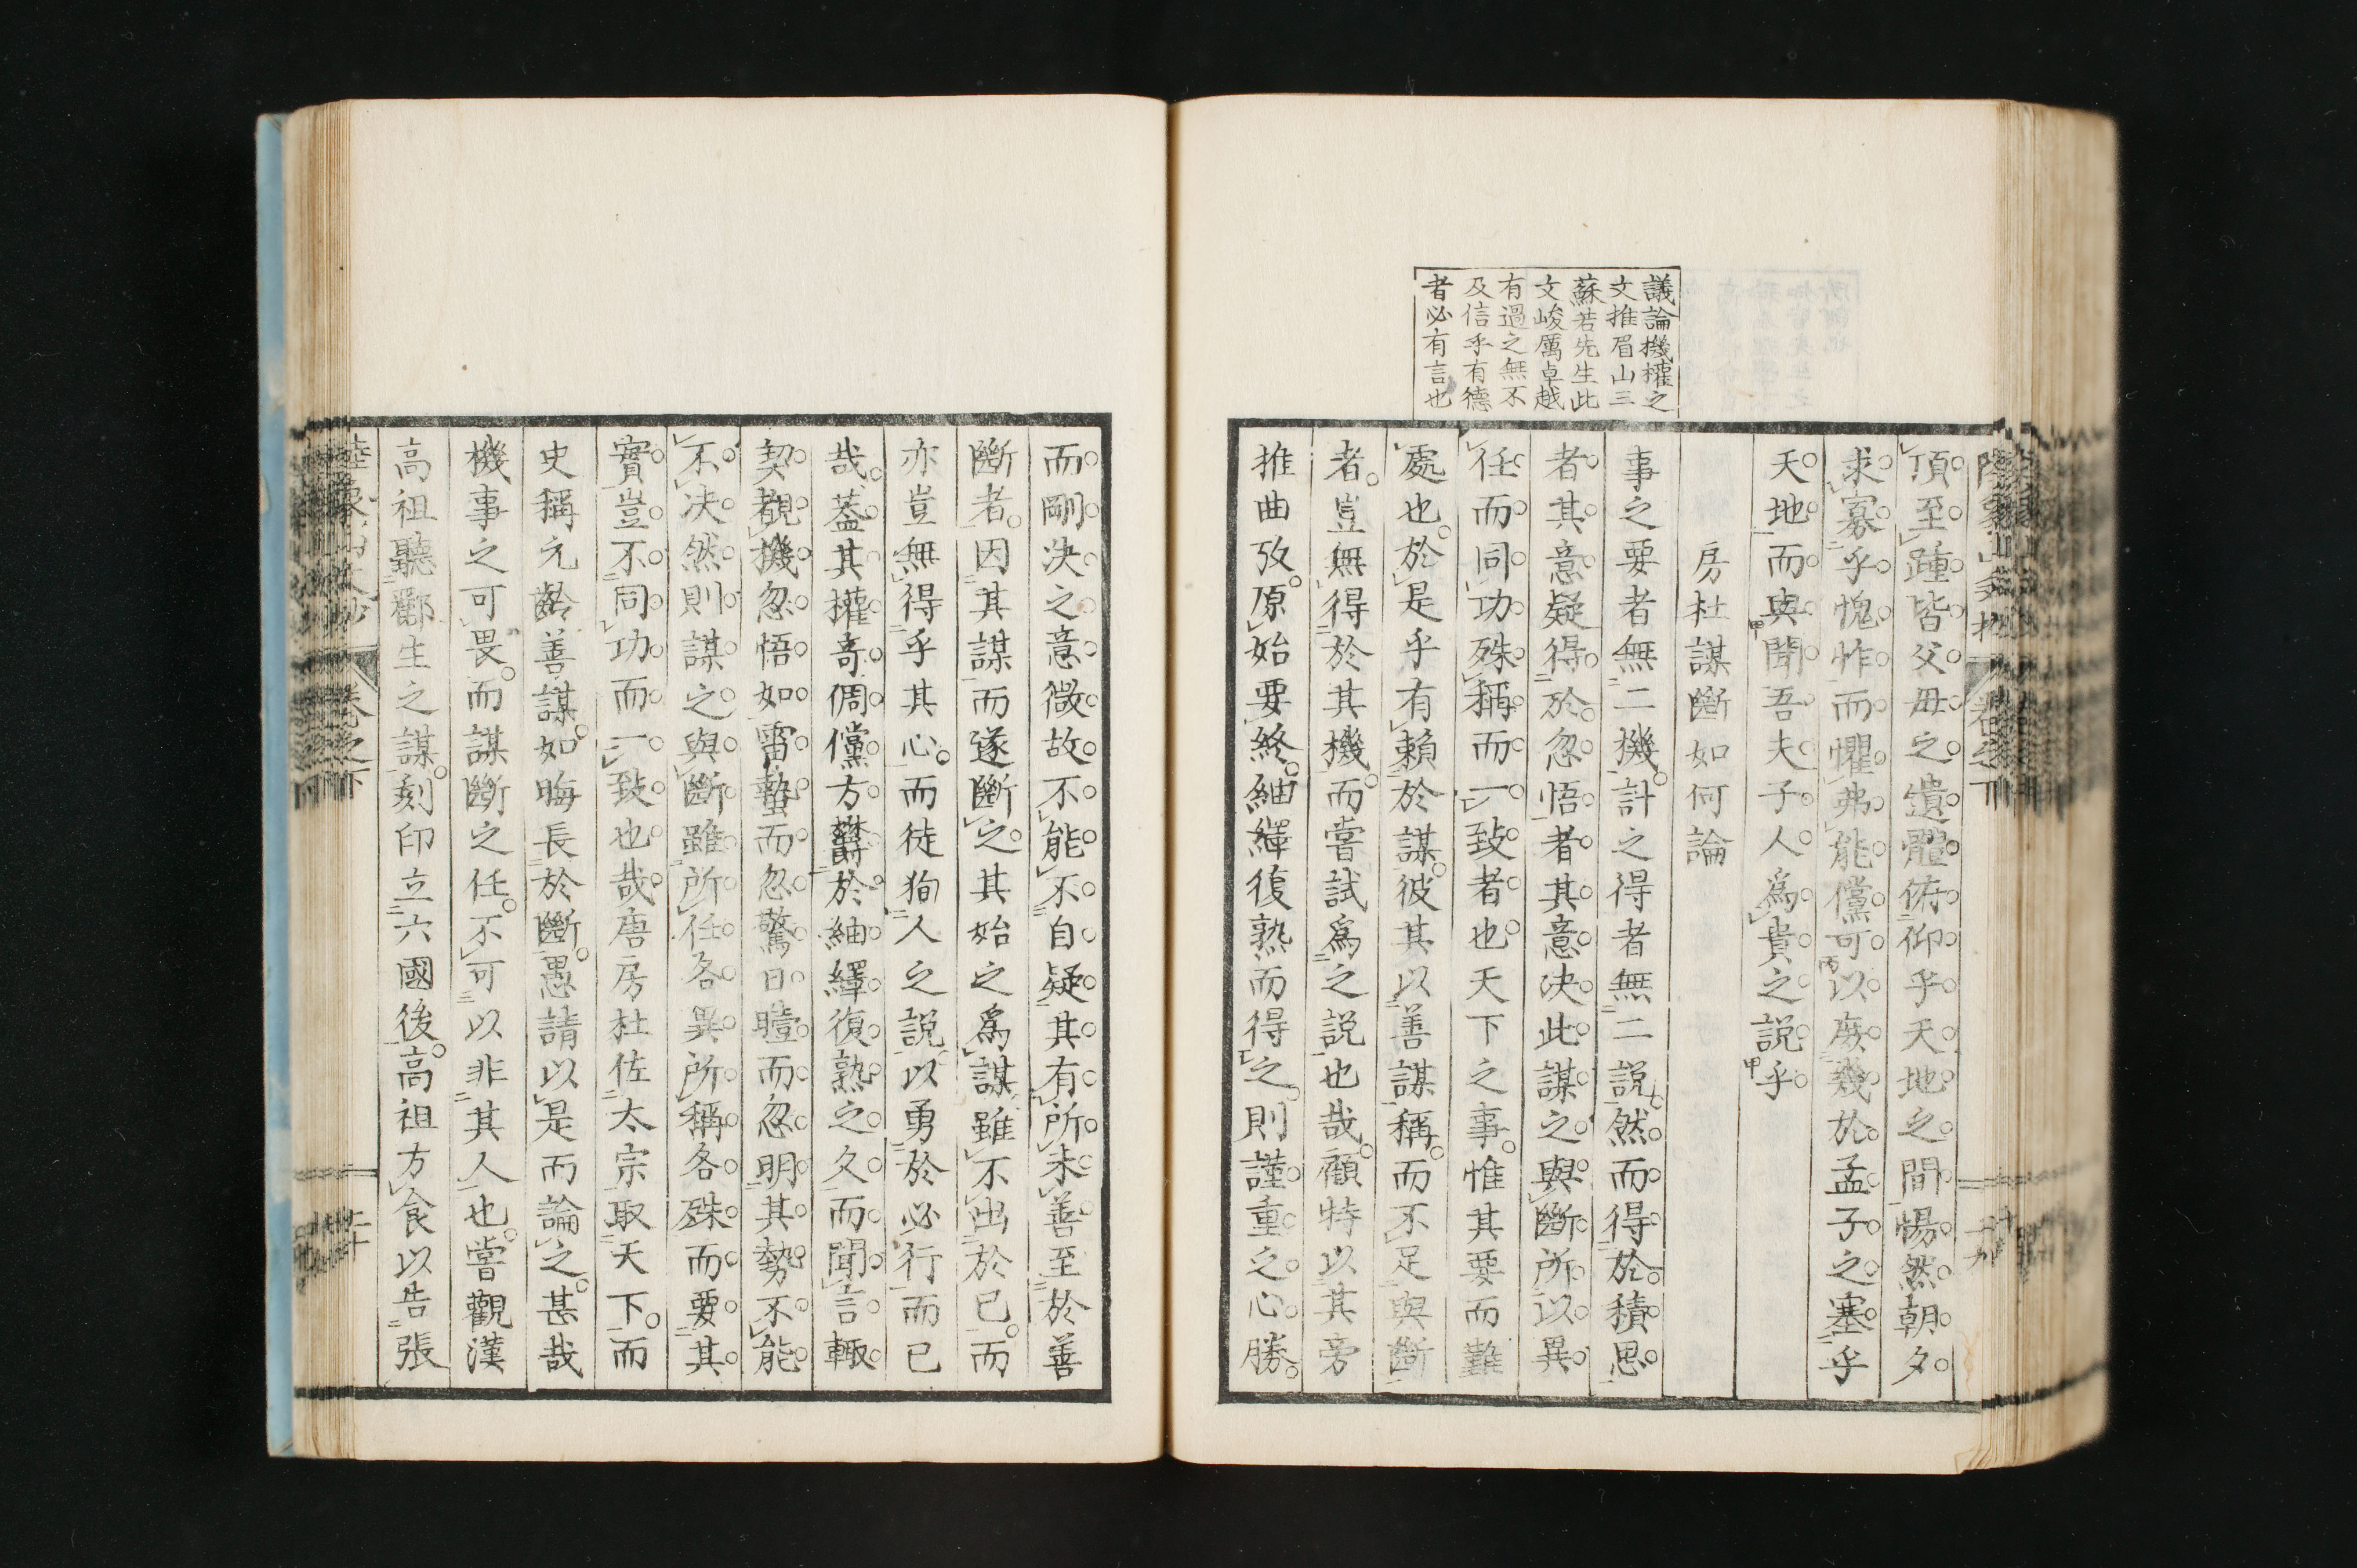 議論機權之
文推眉山三
蘇若先生此
文峻厲卓越
有過之無不
及信乎有德
者必有言也
頂至踵皆父毋之遺體俯仰乎天地之間惕然朝夕
求寡乎愧怍而懼弗能儻可以庶幾於孟子之塞乎
天地而與聞吾夫子人爲貴之説乎
房杜謀斷如何論
事之要者無二機計之得者無二説然而得於積思
者其意疑得於忽悟者其意决此謀之與斷所以異
任而同功殊稱而一致者也天下之事惟其要而難
處也於是乎有賴於謀彼其以善謀稱而不足與斷
者豈無得於其機而嘗試爲之説也哉顧特以其旁
推曲攷原始要終紬繹復熟而得之則謹重之心勝
而剛决之意微故不能不自疑其有所未善至於善
斷者因其謀而遂斷之其始之爲謀雖不出於已而
亦豈無得乎其心而徒狥人之説以勇於必行而已
哉蓋其權奇倜儻方欝於紬繹復熟之久而聞言輙
契觀機忽悟如雷蟄而忽驚日曀而忽明其勢不能
不决然則謀之與斷雖所任各異所稱各殊而要其
實豈不同功而一致也哉唐房杜佐太宗取天下而
史稱元齡善謀如晦長於斷愚請以是而論之甚哉
機事之可畏而謀斷之任不可以非其人也嘗觀漢
高祖聽酈生之謀刻印立六國後高祖方食以告張
卷之下